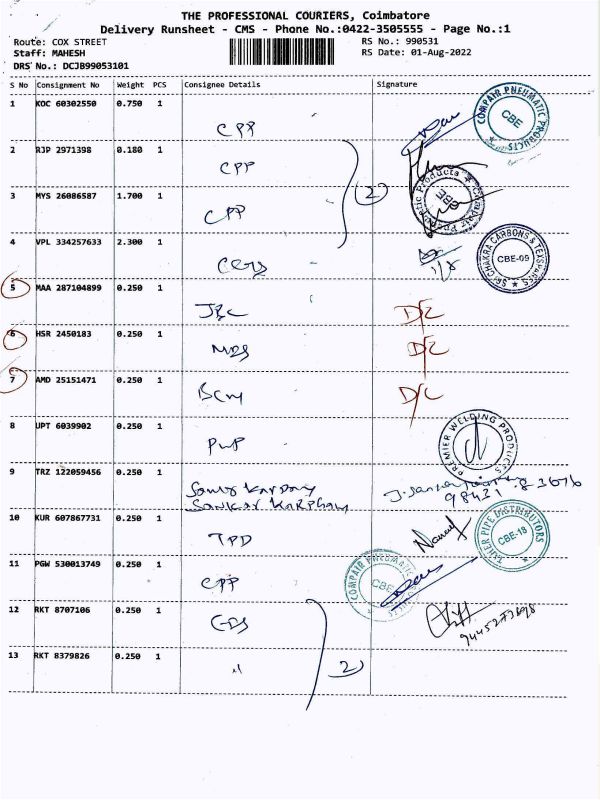 THE PROFESSIONAL COURIERS, Coimbatore
Delivery Runsheet - CMS - Phone No.:0422-3505555 - Page No.:1
Route: COX STREET RS No.: 990531
Staff: MAHESH RS Date: 01-Aug-2022
DRS No.: DCJB99053101
S No Consignment No Weight PCS Consignee Details Signature
1 KOC 60302550 0.750 1
CPP
COMPAIR PNEUMATIC PRODUCTS
CBE
2 RJP 2971398 0.180 1
CPP
(2)
3 MYS 26086587 1.700 1
CPP
4 VPL 334257633 2.300 1
SRI CHAKRA CARBONS & TEXSPARES
CBE-09
5 MAA 287104899 0.250 1
6 HSR 2450183 0.250 1
7 AMD 25151471 0.250 1
D/C
8 UPT 6039902 0.250 1
PWP
PREMIER WELDING PRODUCTS
9 TRZ 122059456 0.250 1
SANKAR KARPHAM
10 KUR 607867731 0.250 1
TPD
PIPE DISTRIBUTORS
CBE-18
11 PGW 530013749 0.250 1
CPP
COMPAIR PNEUMATIC
CBE
12 RKT 8707106 0.250 1
13 RKT 8379826 0.250 1
"
(2)